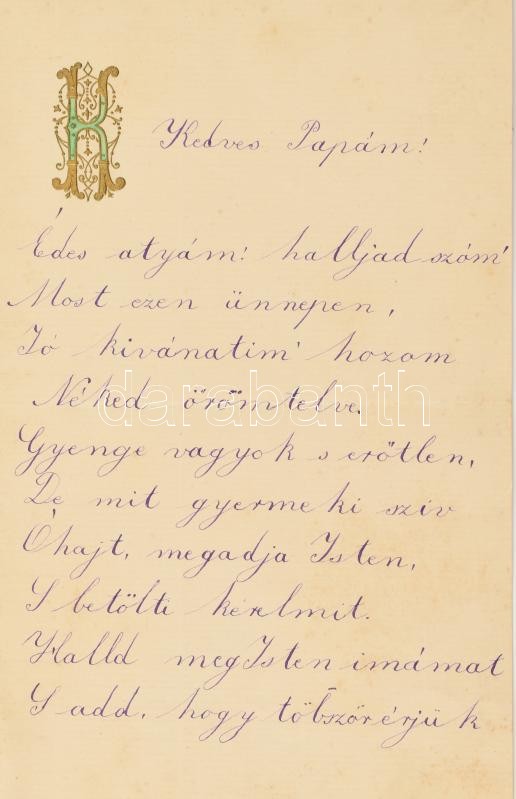 K
Kedves Papám!
Édes atyám! halljad szóm'
Most ezen ünnepen,
Jó kivánatim' hozom
Néked örömtelve.
darabanth
Gyenge vagyok s erőtlen,
De mit gyermeki sziv
Óhajt, megadja Isten,
S betölti kérelmit.
Halld meg Isten imámat
S add, hogy többször érjük